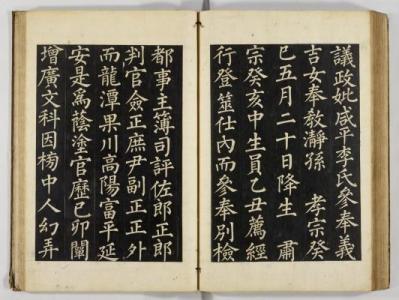 議政妣咸平李氏參奉義
吉女奉教瀞孫　孝宗癸
巳五月二十日降生　肅
宗癸亥中生員乙丑薦經
行登筮仕內而參奉別檢
都事主簿司評佐郎正郎
判官僉正庶尹副正正外
而龍潭果川高陽富平延
安是爲蔭塗官歷己卯闡
增廣文科因榜中人幻弄